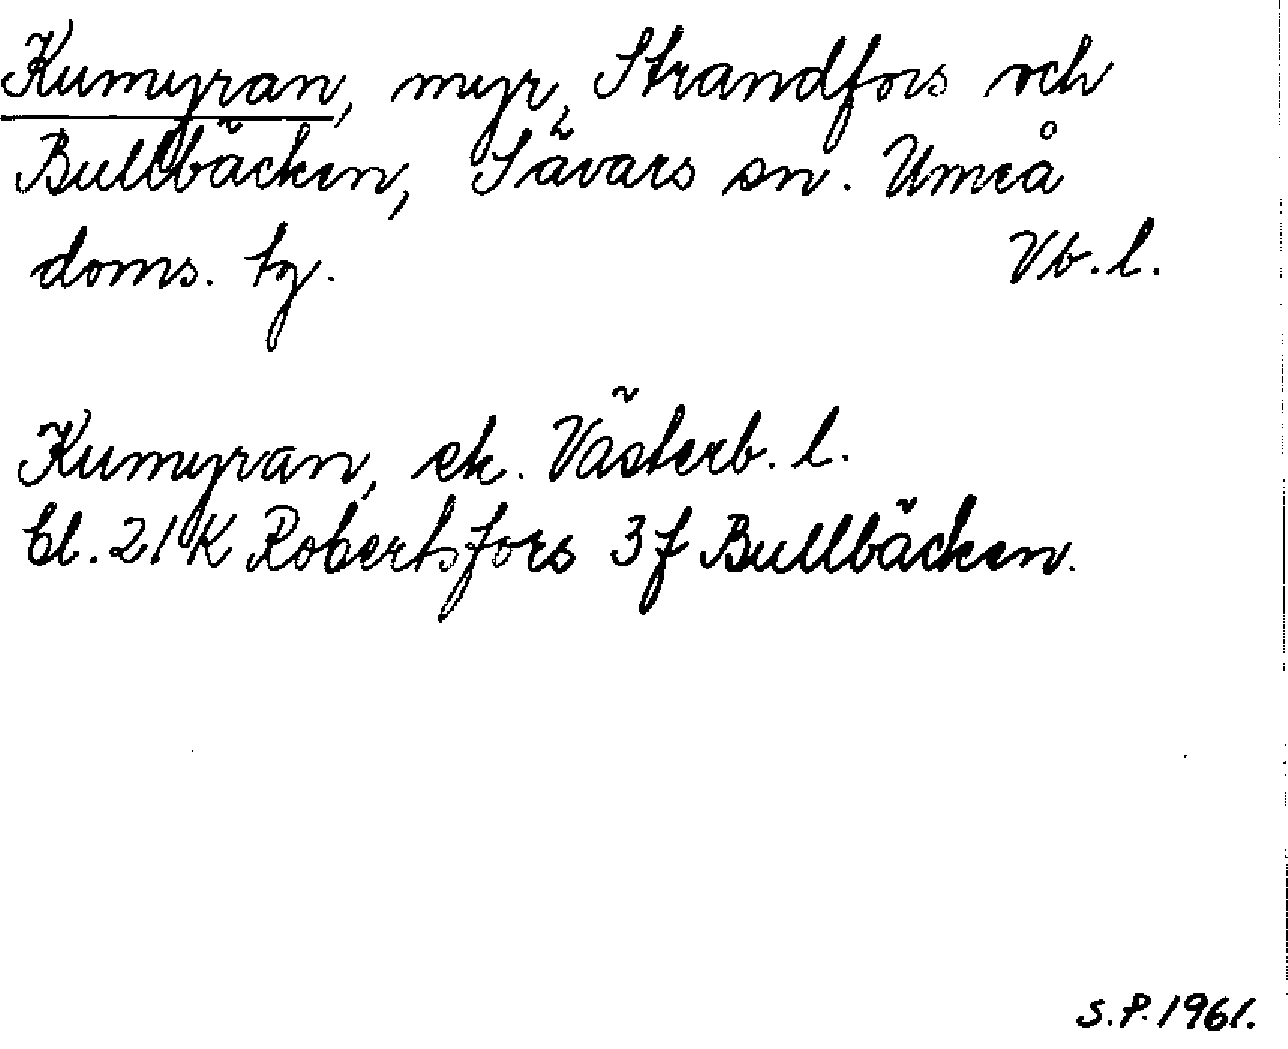 Kumyran, myr, Strandfors och
Bullbäcken, Sävars sn. Umeå
doms. tg. Vb. l.
Kumyran, ek. Västerb. l.
bl. 21K Robertsfors 3f Bullbäcken.
S.P. 1961.